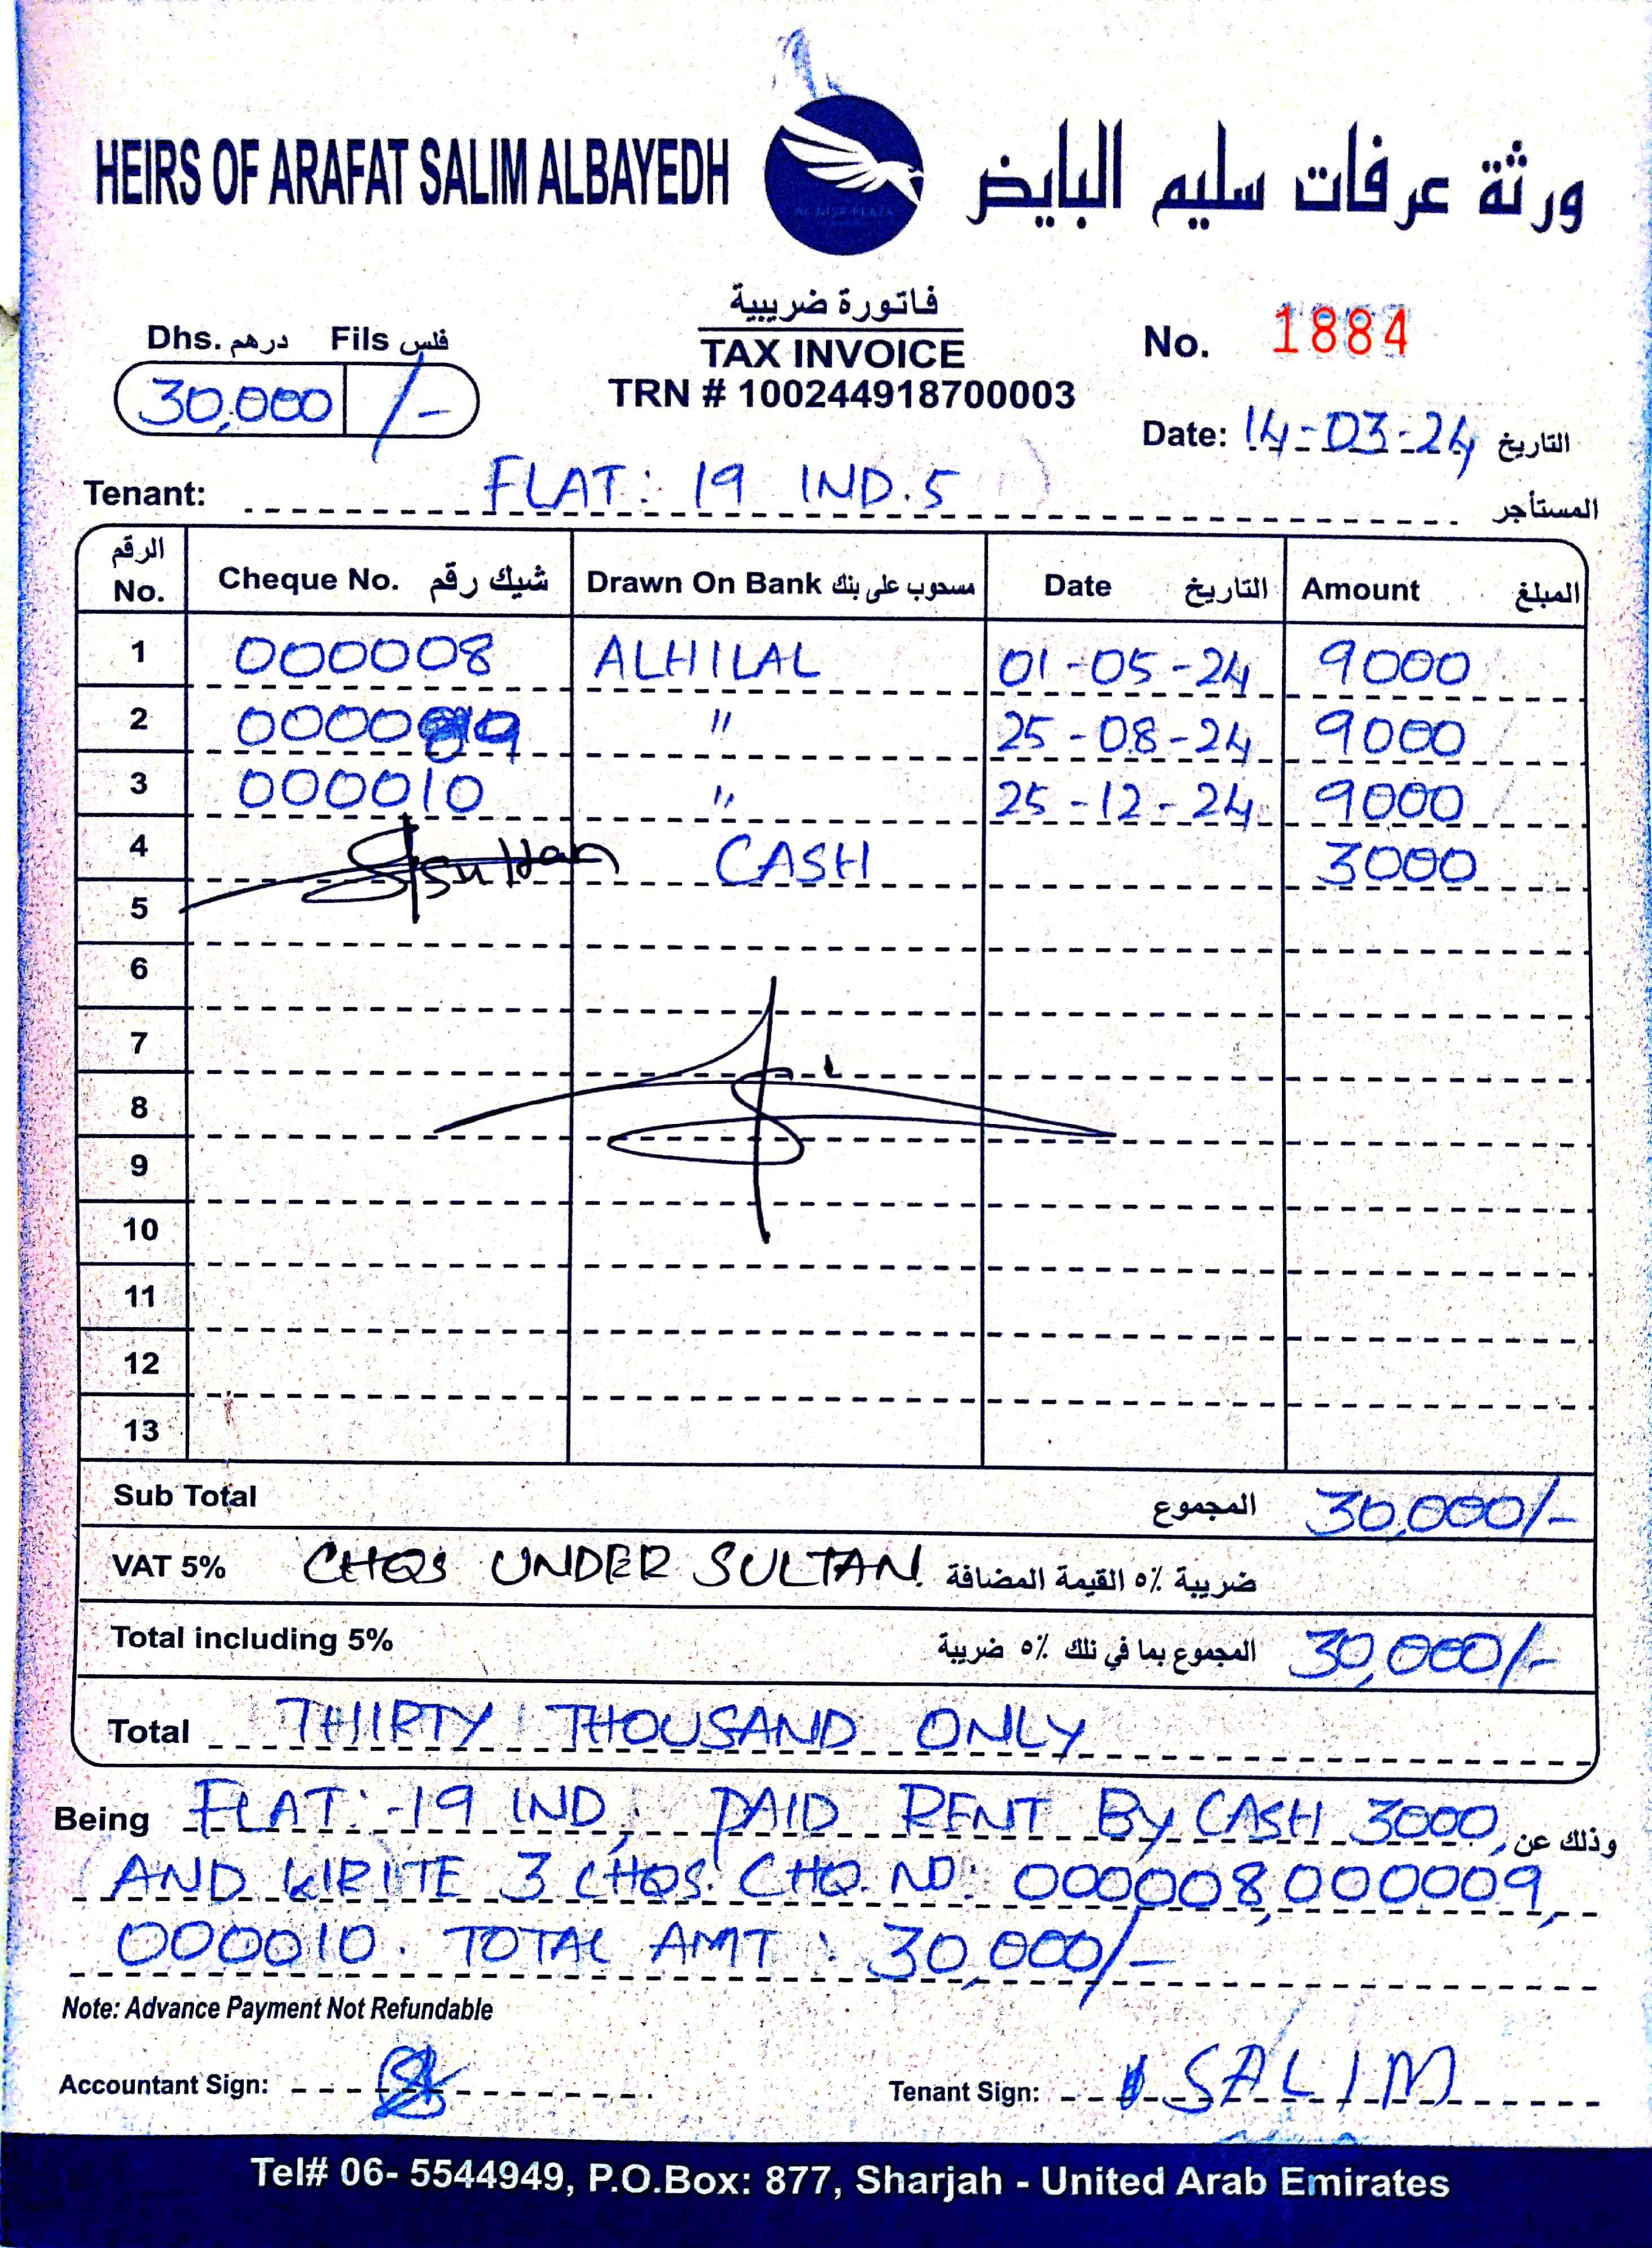 HEIRS OF ARAFAT SALIM ALBAYEDH ورثة عرفات سليم البايض
AL NISR PLAZA
فاتورة ضريبية
Dhs. درهم Fils فلس
TAX INVOICE
No. 1884
30,000 /-
TRN # 100244918700003
Date: 14-03-24 التاريخ
Tenant: FLAT: 19 IND.5 المستأجر
الرقم No. Cheque No. شيك رقم Drawn On Bank مسحوب على بنك Date التاريخ Amount المبلغ
1 000008 ALHILAL 01-05-24 9000
2 000009 " 25-08-24 9000
3 000010 " 25-12-24 9000
4 Sultan CASH 3000
5
6
7
8
9
10
11
12
13
Sub Total المجموع 30,000/-
VAT 5% CHQS UNDER SULTAN. ضريبة ٥٪ القيمة المضافة
Total including 5% المجموع بما في ذلك ٥٪ ضريبة 30,000/-
Total THIRTY THOUSAND ONLY
Being FLAT:-19 IND, PAID RENT By CASH 3000, وذلك عن
AND WRITE 3 CHQS. CHQ. NO: 000008,000009,
000010. TOTAL AMT : 30,000/-
Note: Advance Payment Not Refundable
Accountant Sign: Tenant Sign: SALIM
Tel# 06- 5544949, P.O.Box: 877, Sharjah - United Arab Emirates